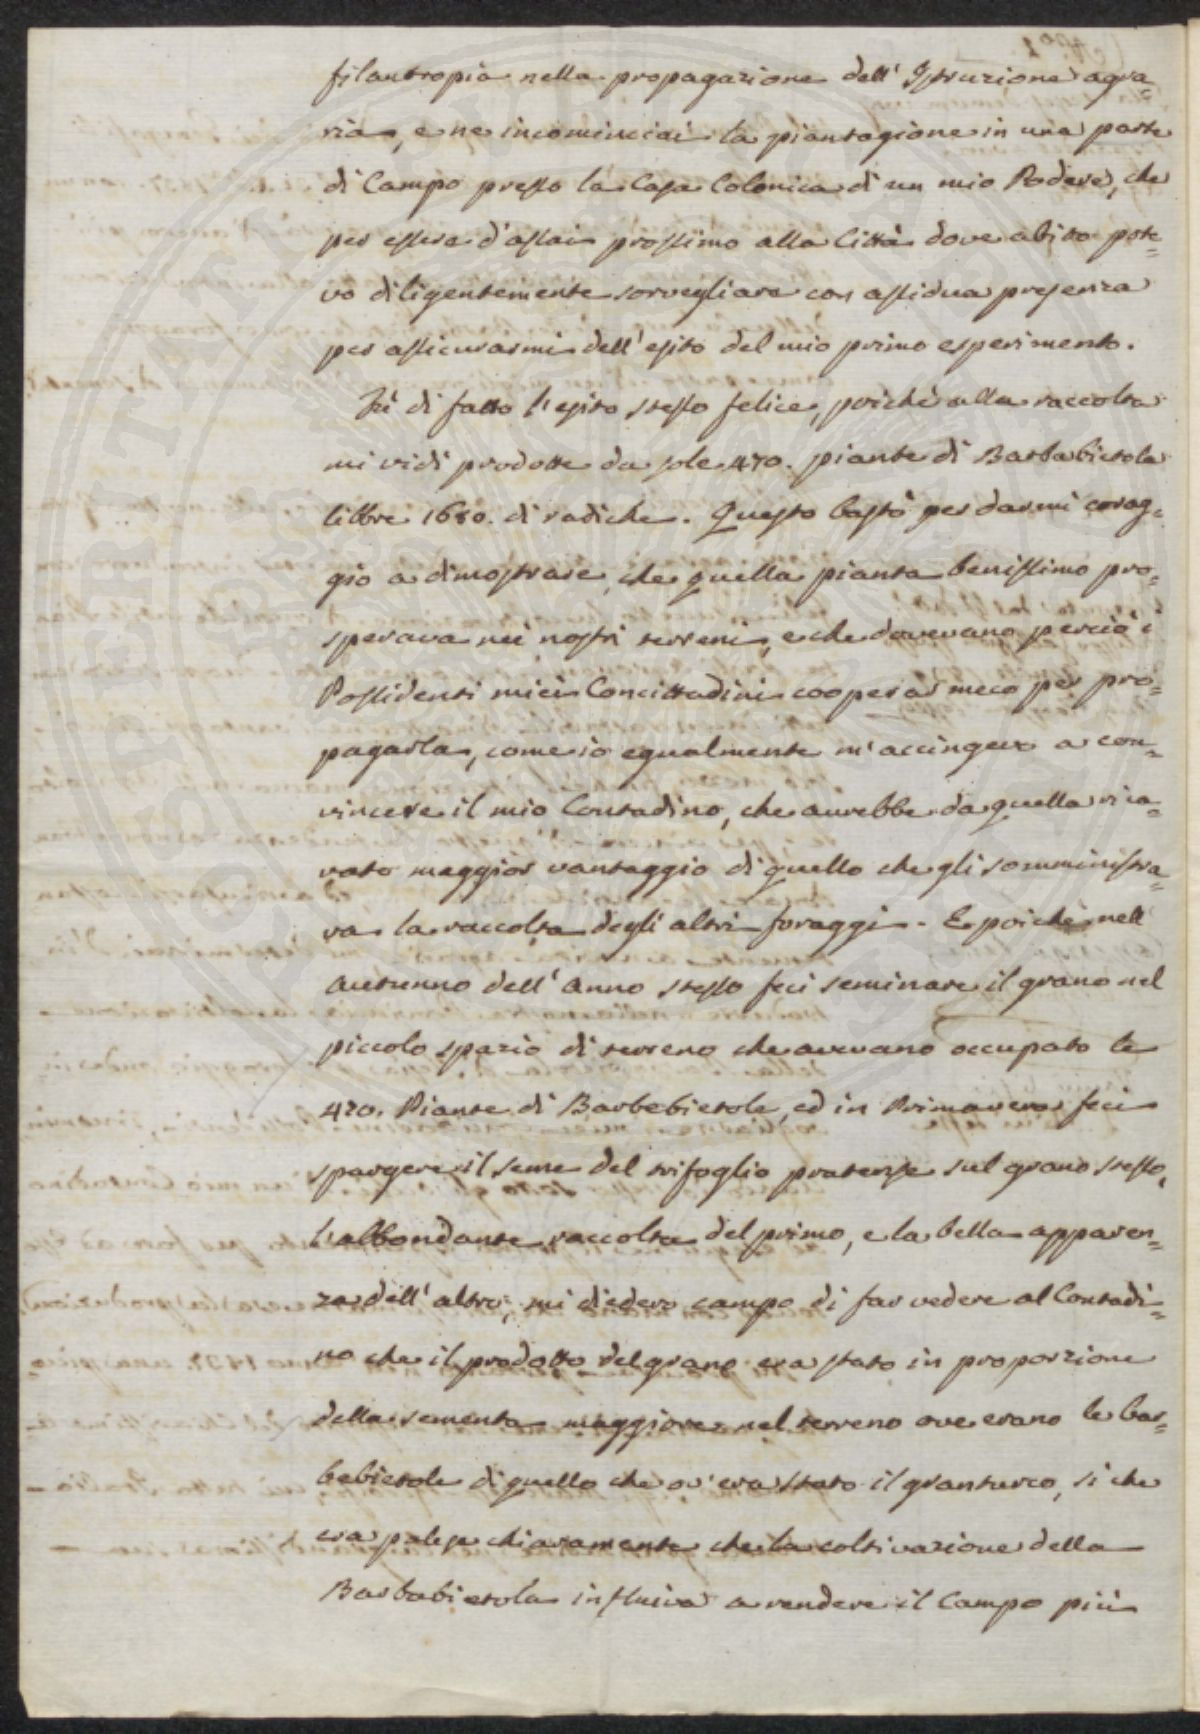 filantropia nella propagazione dell'Istruzione agra=
ria, e ne incominciai la piantagione in una parte
di Campo presso la Casa Colonica di un mio Podere, che
per essere d'assai prossimo alla Città dove abito pote=
vo diligentemente sorvegliare con assidua presenza
per assicurarmi dell'esito del mio primo esperimento.
Fù di fatto l'esito stesso felice, poichè alla raccolta
mi vidi prodotte da sole 470. piante di Barbabietola
libbre 1680. di radiche. Questo bastò per darmi corag=
gio a dimostrare, che quella pianta benissimo pro=
sperava nei nostri terreni, e che dovevano perciò i
Possidenti miei Concittadini cooperar meco per pro=
pagarla, come io egualmente m'accingevo a con=
vincere il mio Contadino, che avrebbe da quella rica=
vato maggior vantaggio di quello che gli somministra=
va la raccolta degli altri foraggi. E poichè nell'
autunno dell'anno stesso feci seminare il grano nel
piccolo spazio di terreno che avevano occupato le
470. Piante di Barbebietole, ed in Primavera feci
spargere il seme del trifoglio pratense sul grano stesso,
l'abbondante raccolta del primo, e la bella apparen=
za dell'altro, mi diedero campo di far vedere al Contadi=
no che il prodotto del grano era stato in proporzione
della sementa maggiore nel terreno ove erano le bar=
bebietole di quello che ov'era stato il granturco, si che
era palese chiaramente che la coltivazione della
Barbabietola influiva a rendere il Campo più